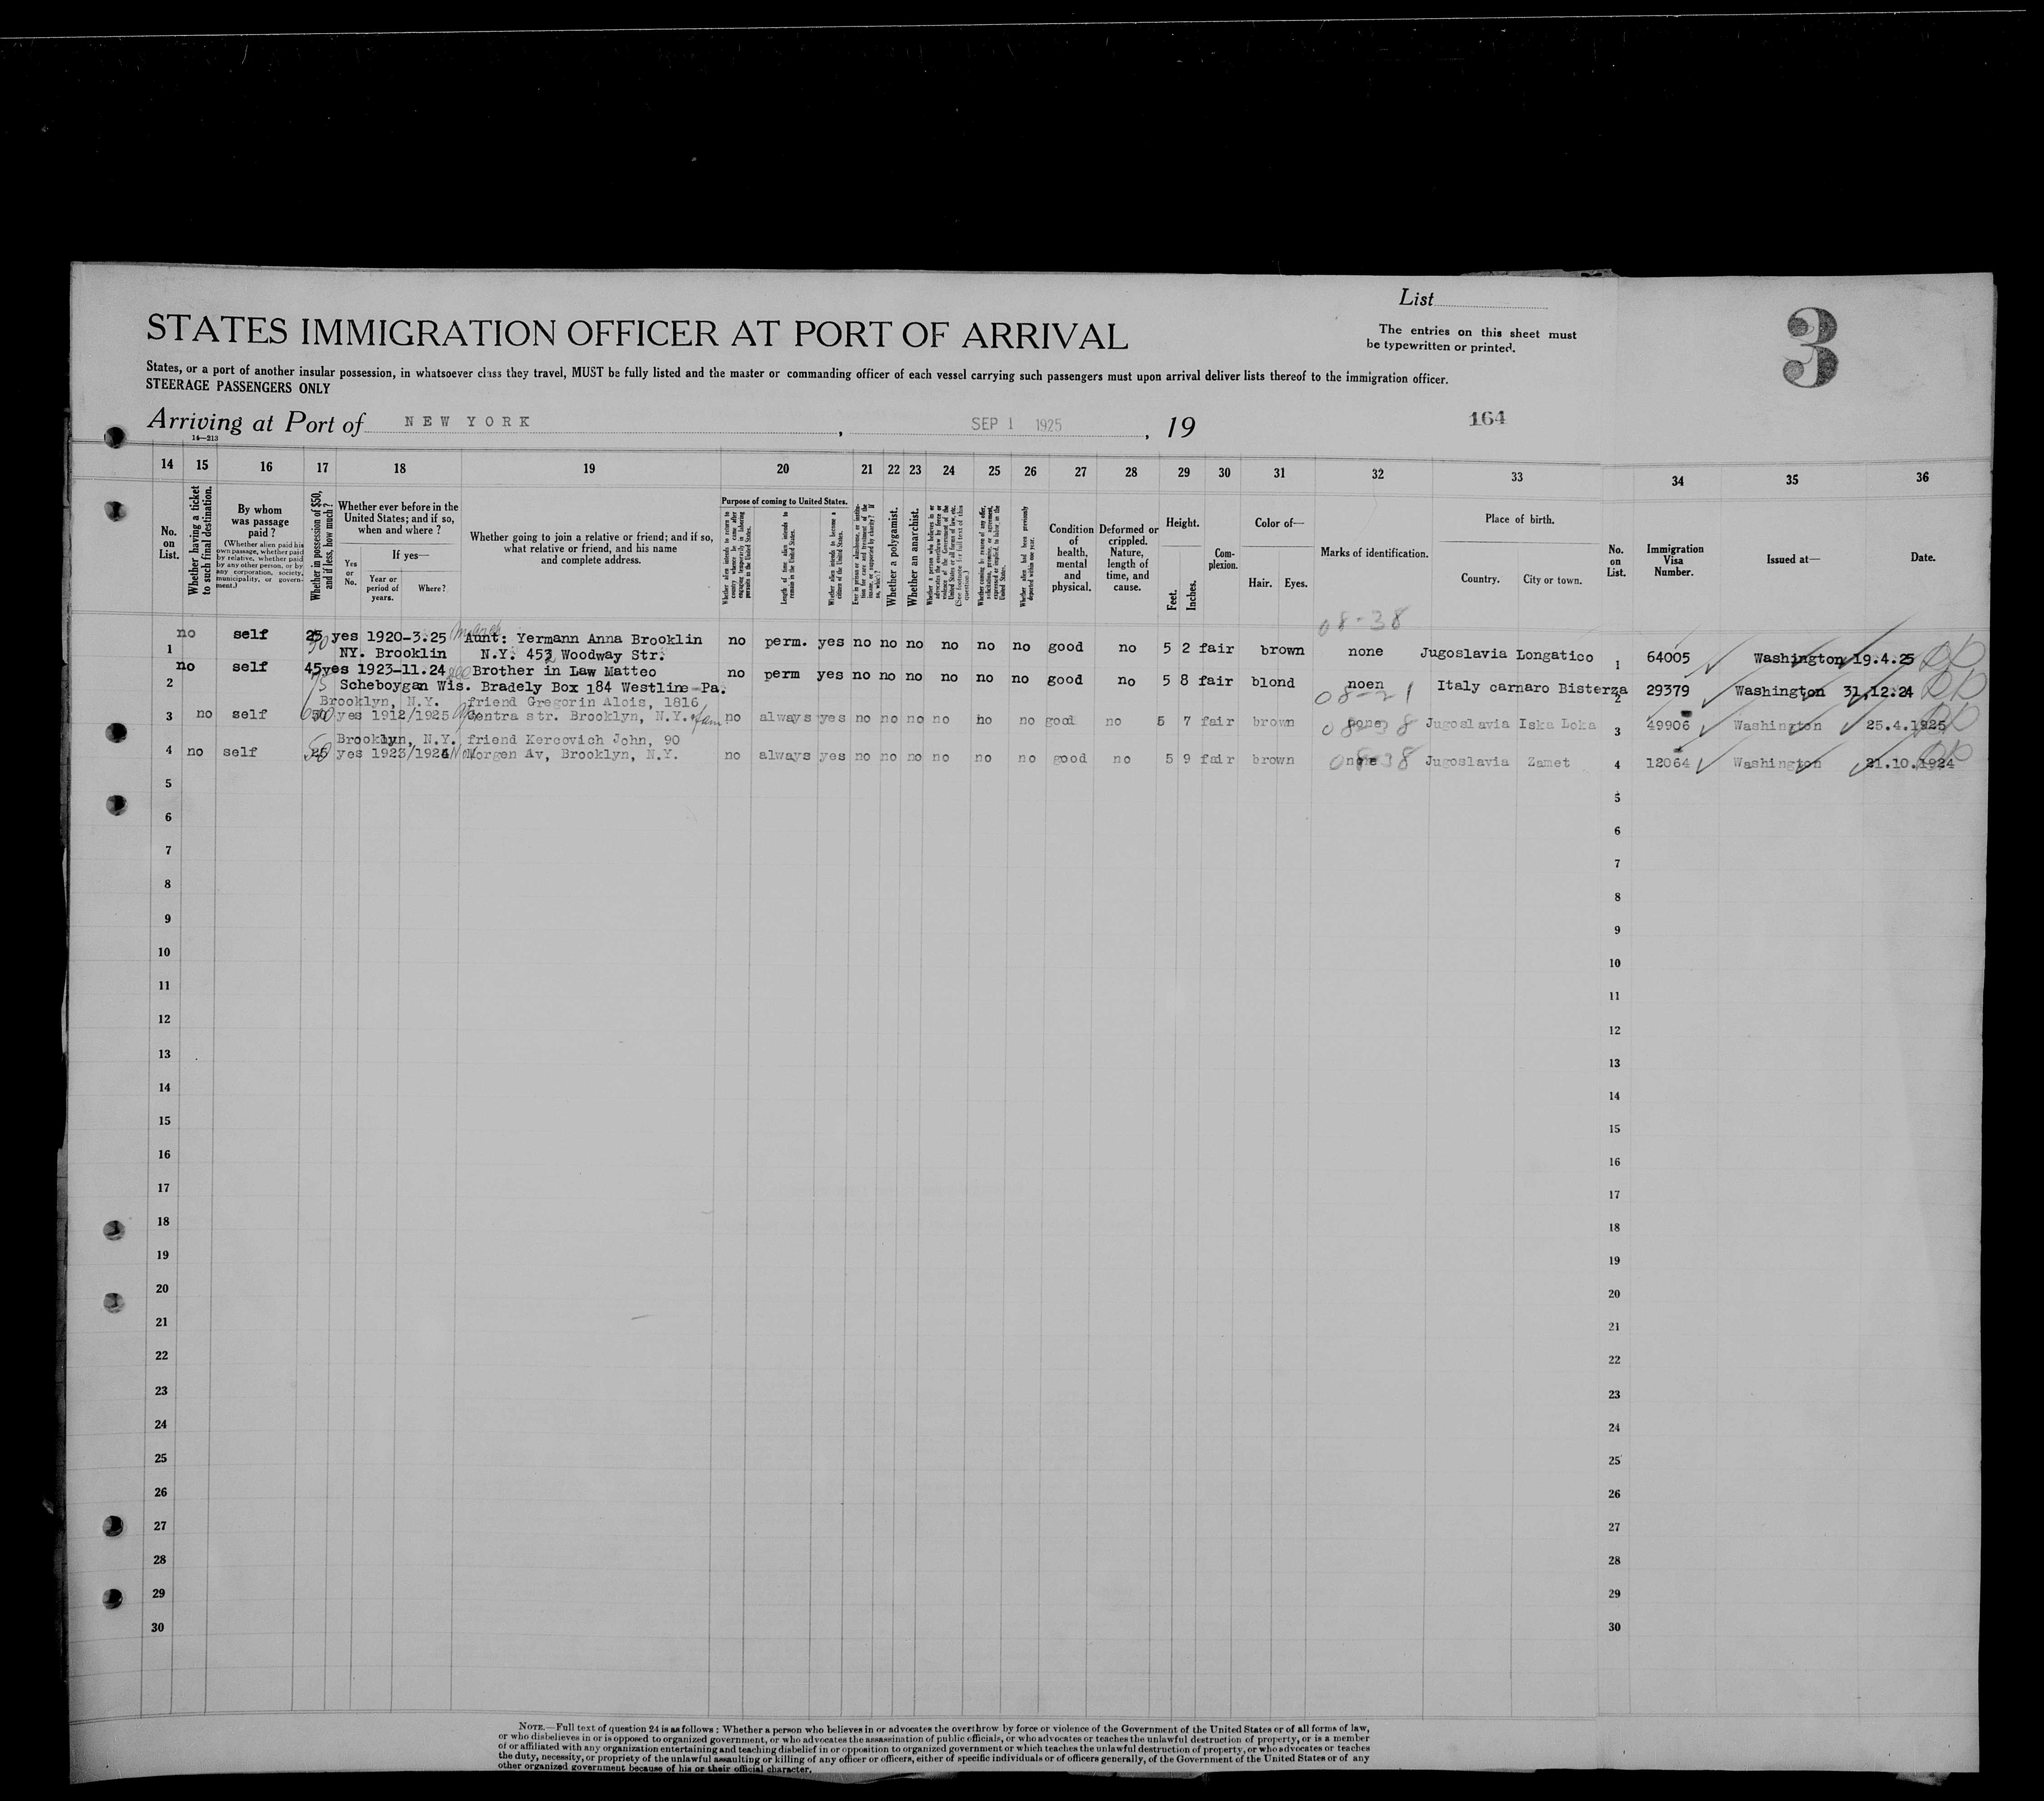 List
3
STATES IMMIGRATION OFFICER AT PORT OF ARRIVAL
The entries on this sheet must
be typewritten or printed.
States, or a port of another insular possession, in whatsoever class they travel, MUST be fully listed and the master or commanding officer of each vessel carrying such passengers must upon arrival deliver lists thereof to the immigration officer.
STEERAGE PASSENGERS ONLY
Arriving at Port of NEW YORK, SEP 1 1925, 19
164
14—213
14 15 16 17 18 19 20 21 22 23 24 25 26 27 28 29 30 31 32 33 34 35 36
No. on List.
Whether having a ticket to such final destination.
By whom was passage paid?
(Whether alien paid his own passage, whether paid by relative, whether paid by any other person, or by any corporation, society, municipality, or government.)
Whether in possession of $50, and if less, how much?
Whether ever before in the United States; and if so, when and where?
Yes or No.
If yes—
Year or period of years.
Where?
Whether going to join a relative or friend; and if so, what relative or friend, and his name and complete address.
Purpose of coming to United States.
Whether alien intends to return to country whence he came after engaging temporarily in laboring pursuits in the United States.
Length of time alien intends to remain in the United States.
Whether alien intends to become a citizen of the United States.
Ever in prison or almshouse, or institution for care and treatment of the insane, or supported by charity? If so, which?
Whether a polygamist.
Whether an anarchist.
Whether a person who believes in or advocates the overthrow by force or violence of the Government of the United States or all forms of law, etc. (See footnote for full text of this question.)
Whether coming by reason of any offer, solicitation, promise, or agreement, expressed or implied, to labor in the United States.
Whether alien had been previously deported within one year.
Condition of health, mental and physical.
Deformed or crippled. Nature, length of time, and cause.
Height.
Feet.
Inches.
Complexion.
Color of—
Hair. Eyes.
Marks of identification.
Place of birth.
Country. City or town.
No. on List.
Immigration Visa Number.
Issued at—
Date.
08-38
1 no self 25 yes 1920-3.25 Aunt: Yermann Anna Brooklin no perm. yes no no no no no no good no 5 2 fair brown none Jugoslavia Longatico 1 64005 Washington 19.4.25
NY. Brooklin N.Y. 453 Woodway Str.
2 no self 45 yes 1923-11.24 Brother in Law Matteo no perm yes no no no no no no good no 5 8 fair blond noen Italy carnaro Bisterza 2 29379 Washington 31.12.24
Scheboygan Wis. Bradely Box 184 Westline-Pa.
08-21
Brooklyn, N.Y. friend Gregorin Alois, 1816
3 no self yes 1912/1925 Centra str. Brooklyn, N.Y. no always yes no no no no no no good no 5 7 fair brown none Jugoslavia Iska Loka 3 49906 Washington 25.4.1925
Brooklyn, N.Y. friend Kercovich John, 90
4 no self 25 yes 1923/1924 Morgen Av, Brooklyn, N.Y. no always yes no no no no no no good no 5 9 fair brown none Jugoslavia Zamet 4 12064 Washington 21.10.1924
5 5
6 6
7 7
8 8
9 9
10 10
11 11
12 12
13 13
14 14
15 15
16 16
17 17
18 18
19 19
20 20
21 21
22 22
23 23
24 24
25 25
26 26
27 27
28 28
29 29
30 30
NOTE.—Full text of question 24 is as follows: Whether a person who believes in or advocates the overthrow by force or violence of the Government of the United States or of all forms of law,
or who disbelieves in or is opposed to organized government, or who advocates the assassination of public officials, or who advocates or teaches the unlawful destruction of property, or is a member
of or affiliated with any organization entertaining and teaching disbelief in or opposition to organized government or which teaches the unlawful destruction of property, or who advocates or teaches
the duty, necessity, or propriety of the unlawful assaulting or killing of any officer or officers, either of specific individuals or of officers generally, of the Government of the United States or of any
other organized government because of his or their official character.